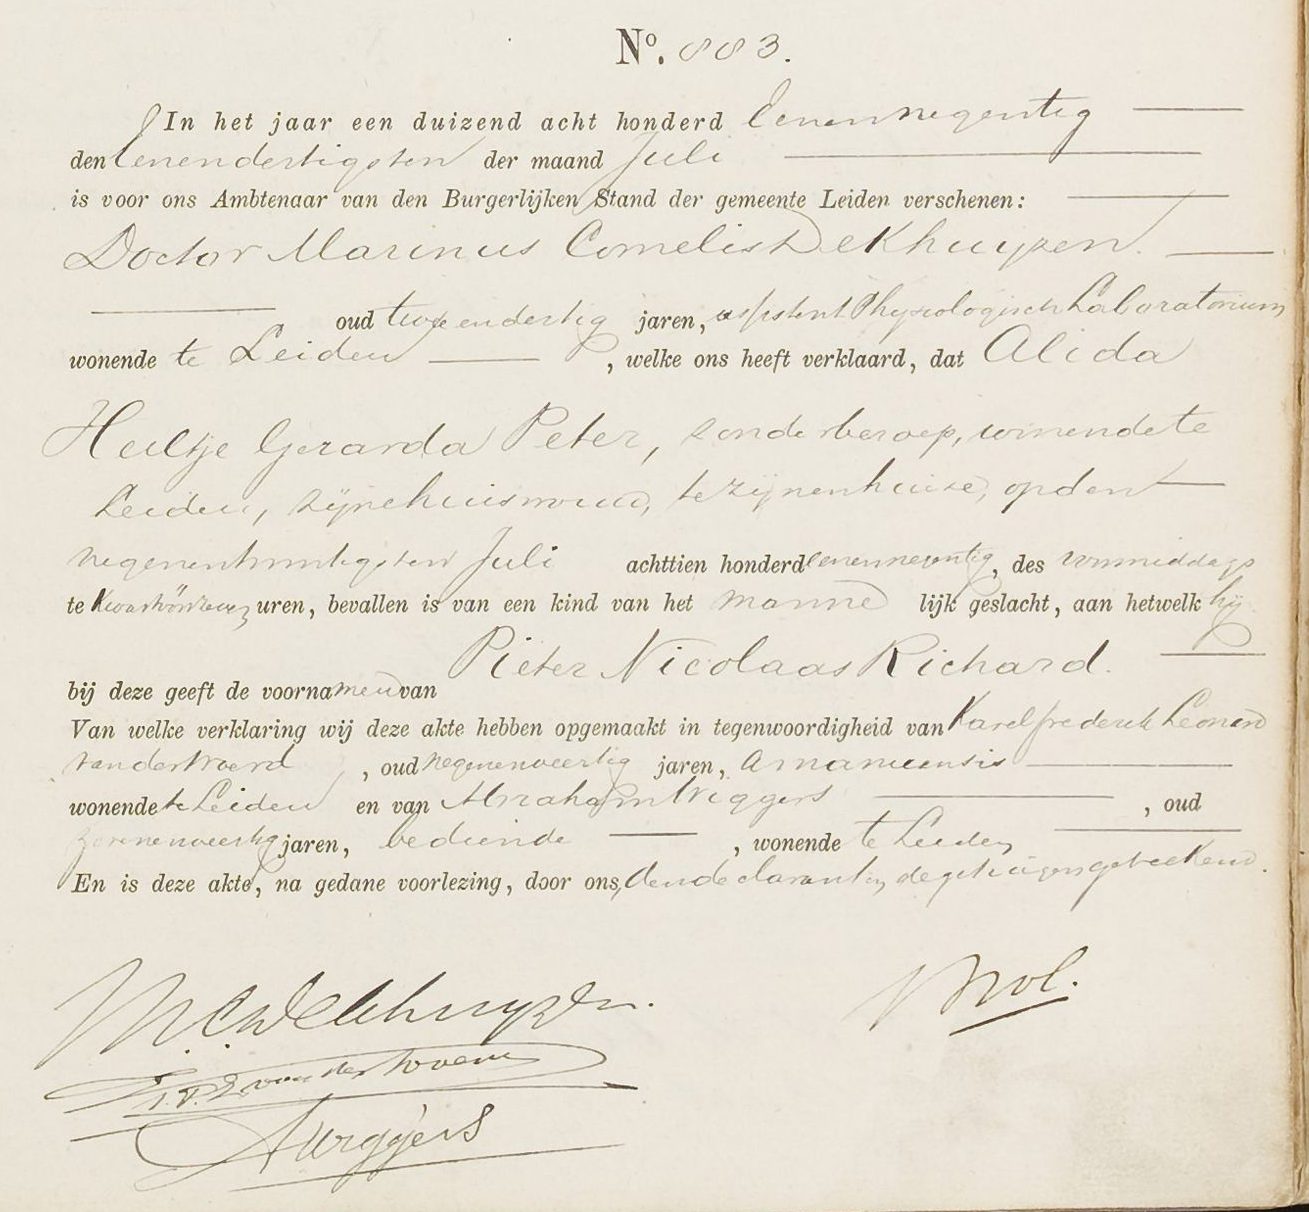 No. 883.
In het jaar een duizend acht honderd Eenennegentig
den Eenendertigsten der maand Juli
is voor ons Ambtenaar van den Burgerlijken Stand der gemeente Leiden verschenen:
Doctor Marinus Cornelis Dekhuyzen.
oud twee en dertig jaren, assistent Physiologisch Laboratorium
wonende te Leiden, welke ons heeft verklaard, dat Alida
Heiltje Gerarda Peter, zonder beroep, wonende te
Leiden, zijne huisvrouw, te zijnen huize, op den
negenentwintigsten Juli achttien honderd eenennegentig, des voormiddags
te uren, bevallen is van een kind van het manne lijk geslacht, aan hetwelk hij
Pieter Nicolaas Richard.
bij deze geeft de voorna men van
Van welke verklaring wij deze akte hebben opgemaakt in tegenwoordigheid van Karel frederik Leonard
van der , oud negenenveertig jaren, amanuensis
wonende te Leiden en van Abraham Wiggers, oud
zevenenveertig jaren, bediende, wonende te Leiden
En is deze akte, na gedane voorlezing, door ons, den declarant en de getuigen geteekend.
M. C. Dekhuyzen.
van der